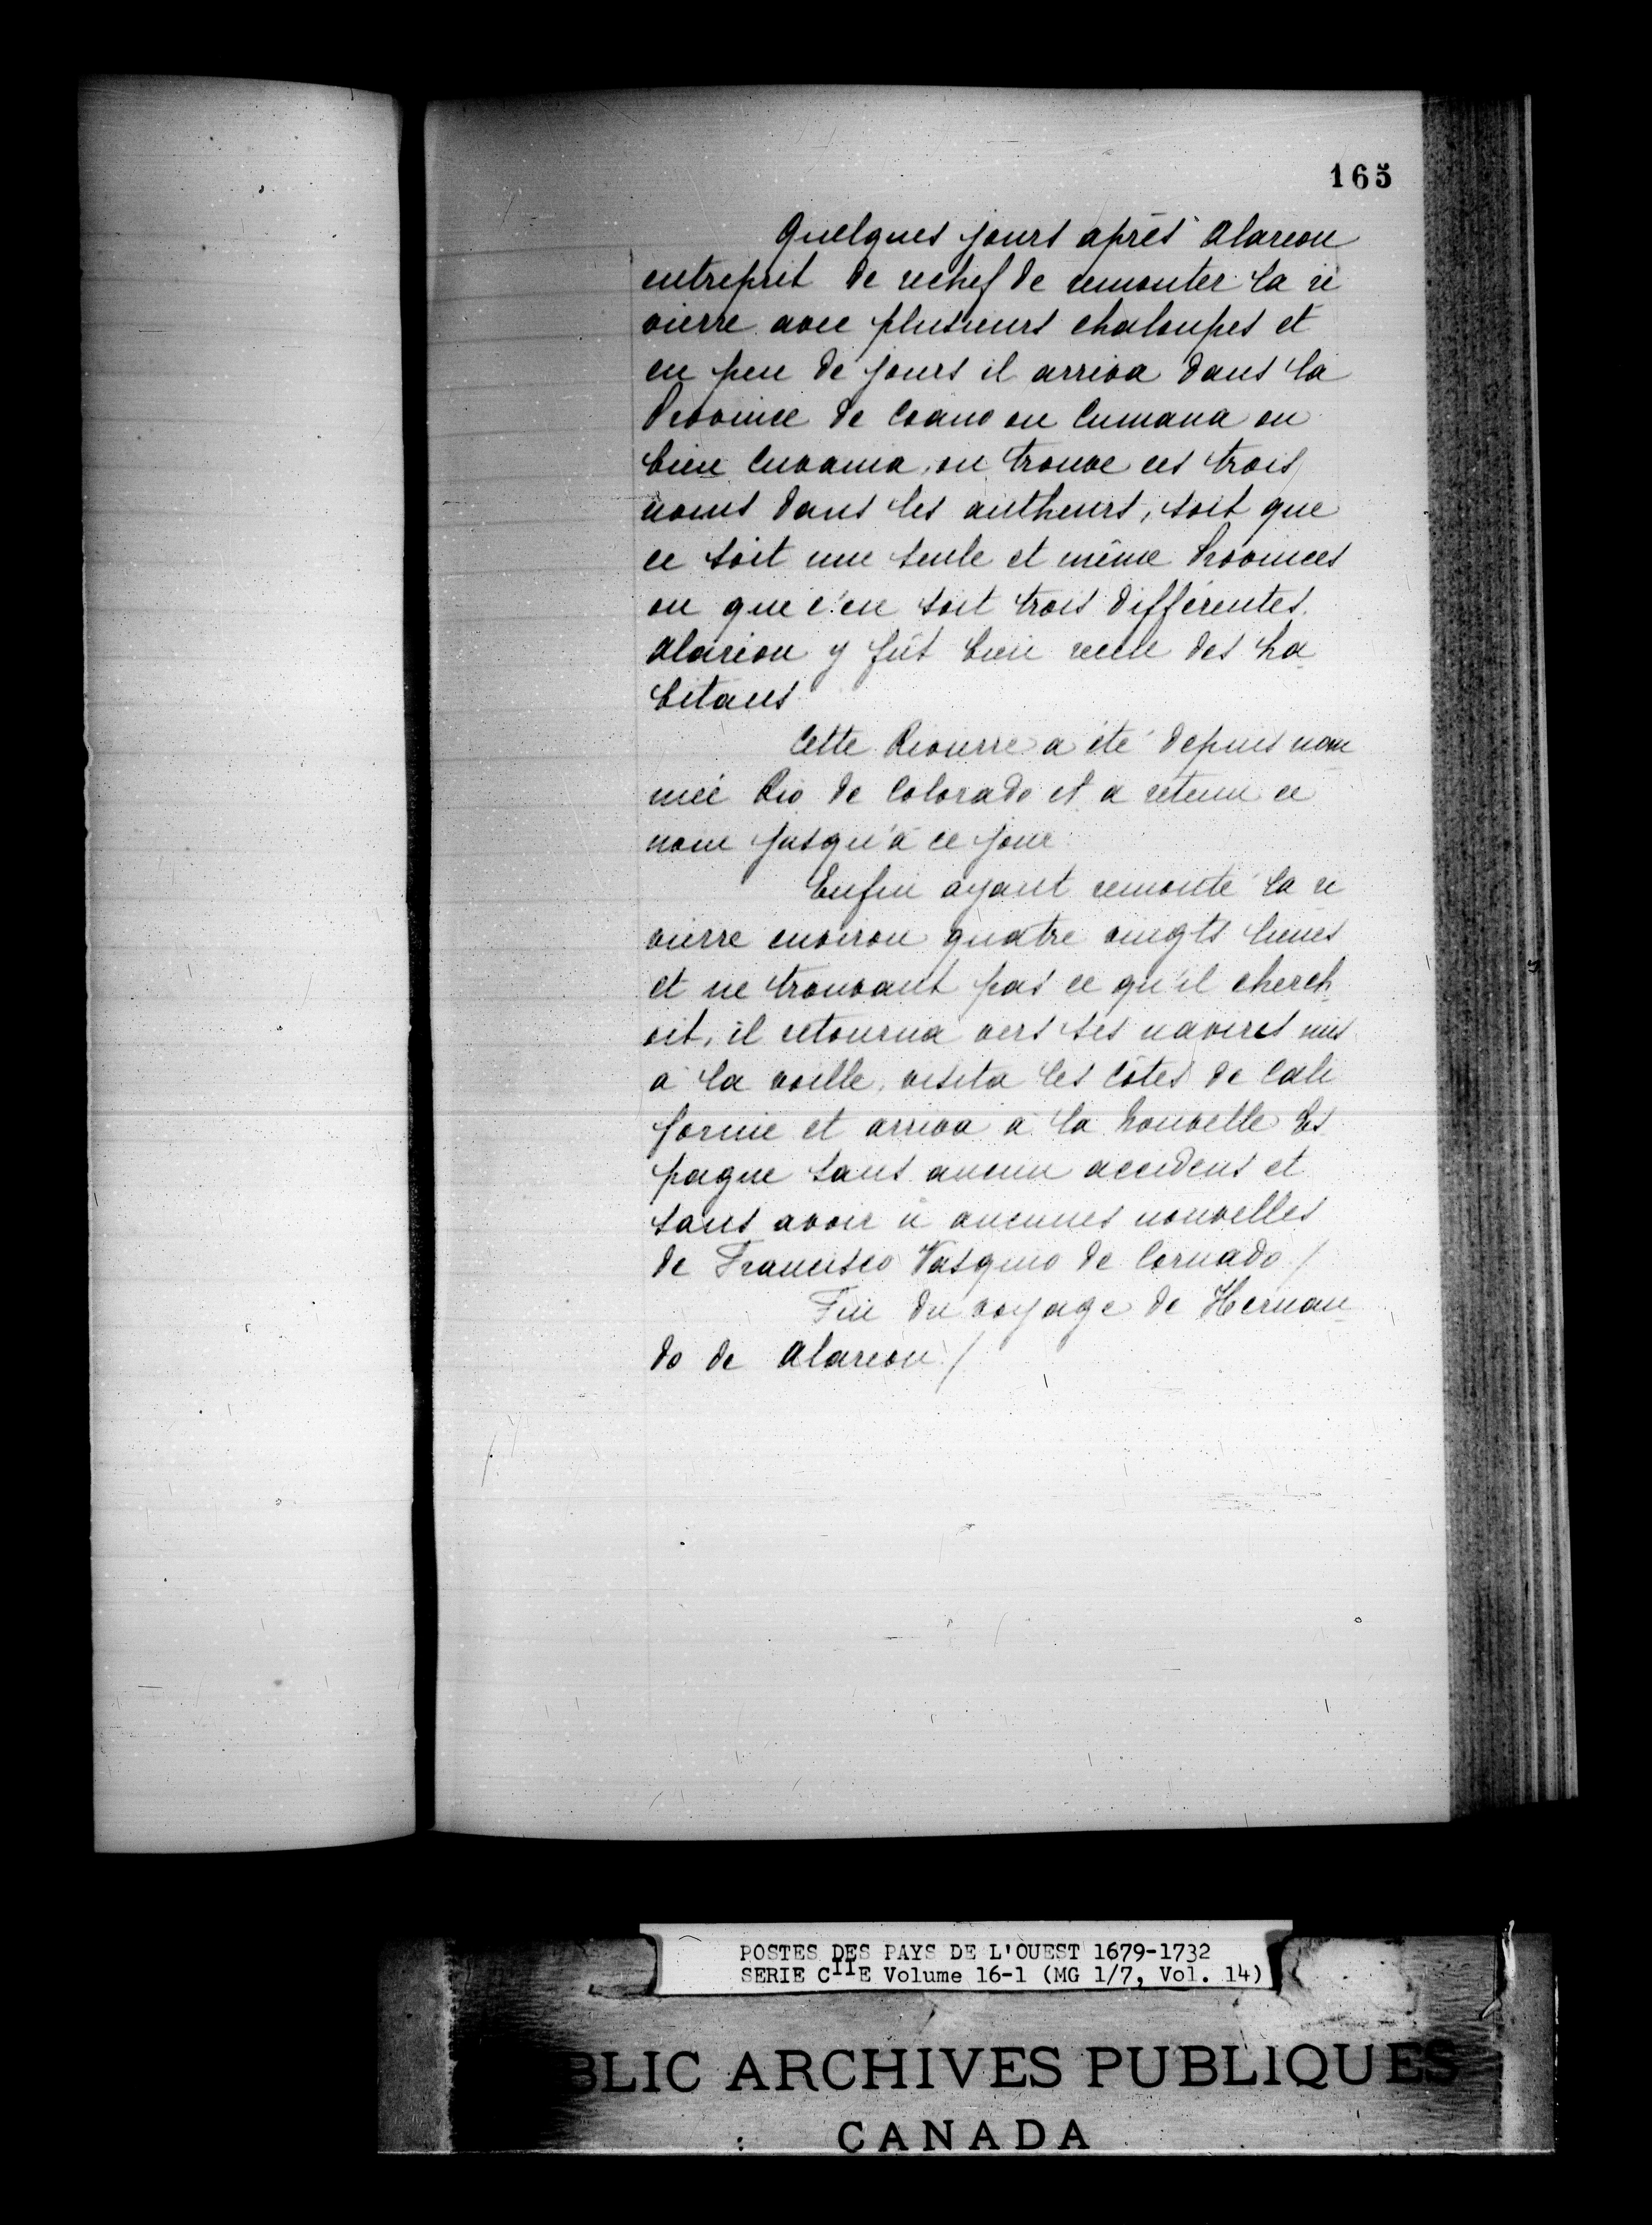 165
Quelques jours après Alarcon
entreprit de rechef de remonter la ri
vierre avec plusieurs chaloupes et
en peu de jours il arriva dans la
Province de Coano ou Cumana ou
bien Cuvama, on trouve ces trois
noms dans les autheurs, soit que
ce soit une seule et même Provinces
ou que c'en soit trois différentes.
Alarcon y fût bien receu des ha
bitans
Cette Rivierre a été depuis nom
mée Rio de Colorado et a retenu ce
nom jusqu'à ce jour
Enfin ayant remonté la ri
vierre environ quatre vingts lieues
et ne trouvant pas ce qu'il cherch
oit, il retourna vers ses navires mis
à la voille, visita les côtes de Cali
fornie et arriva à la Nouvelle Es
pagne sans aucun accidens et
sans avoir û aucunes nouvelles
de Francisco Vasquio de Cornado /
Fin du voyage de Hernan
do de Alarcon /
POSTES DES PAYS DE L'OUEST 1679-1732
SERIE CIIE Volume 16-1 (MG 1/7, Vol. 14)
BLIC ARCHIVES PUBLIQUES
CANADA